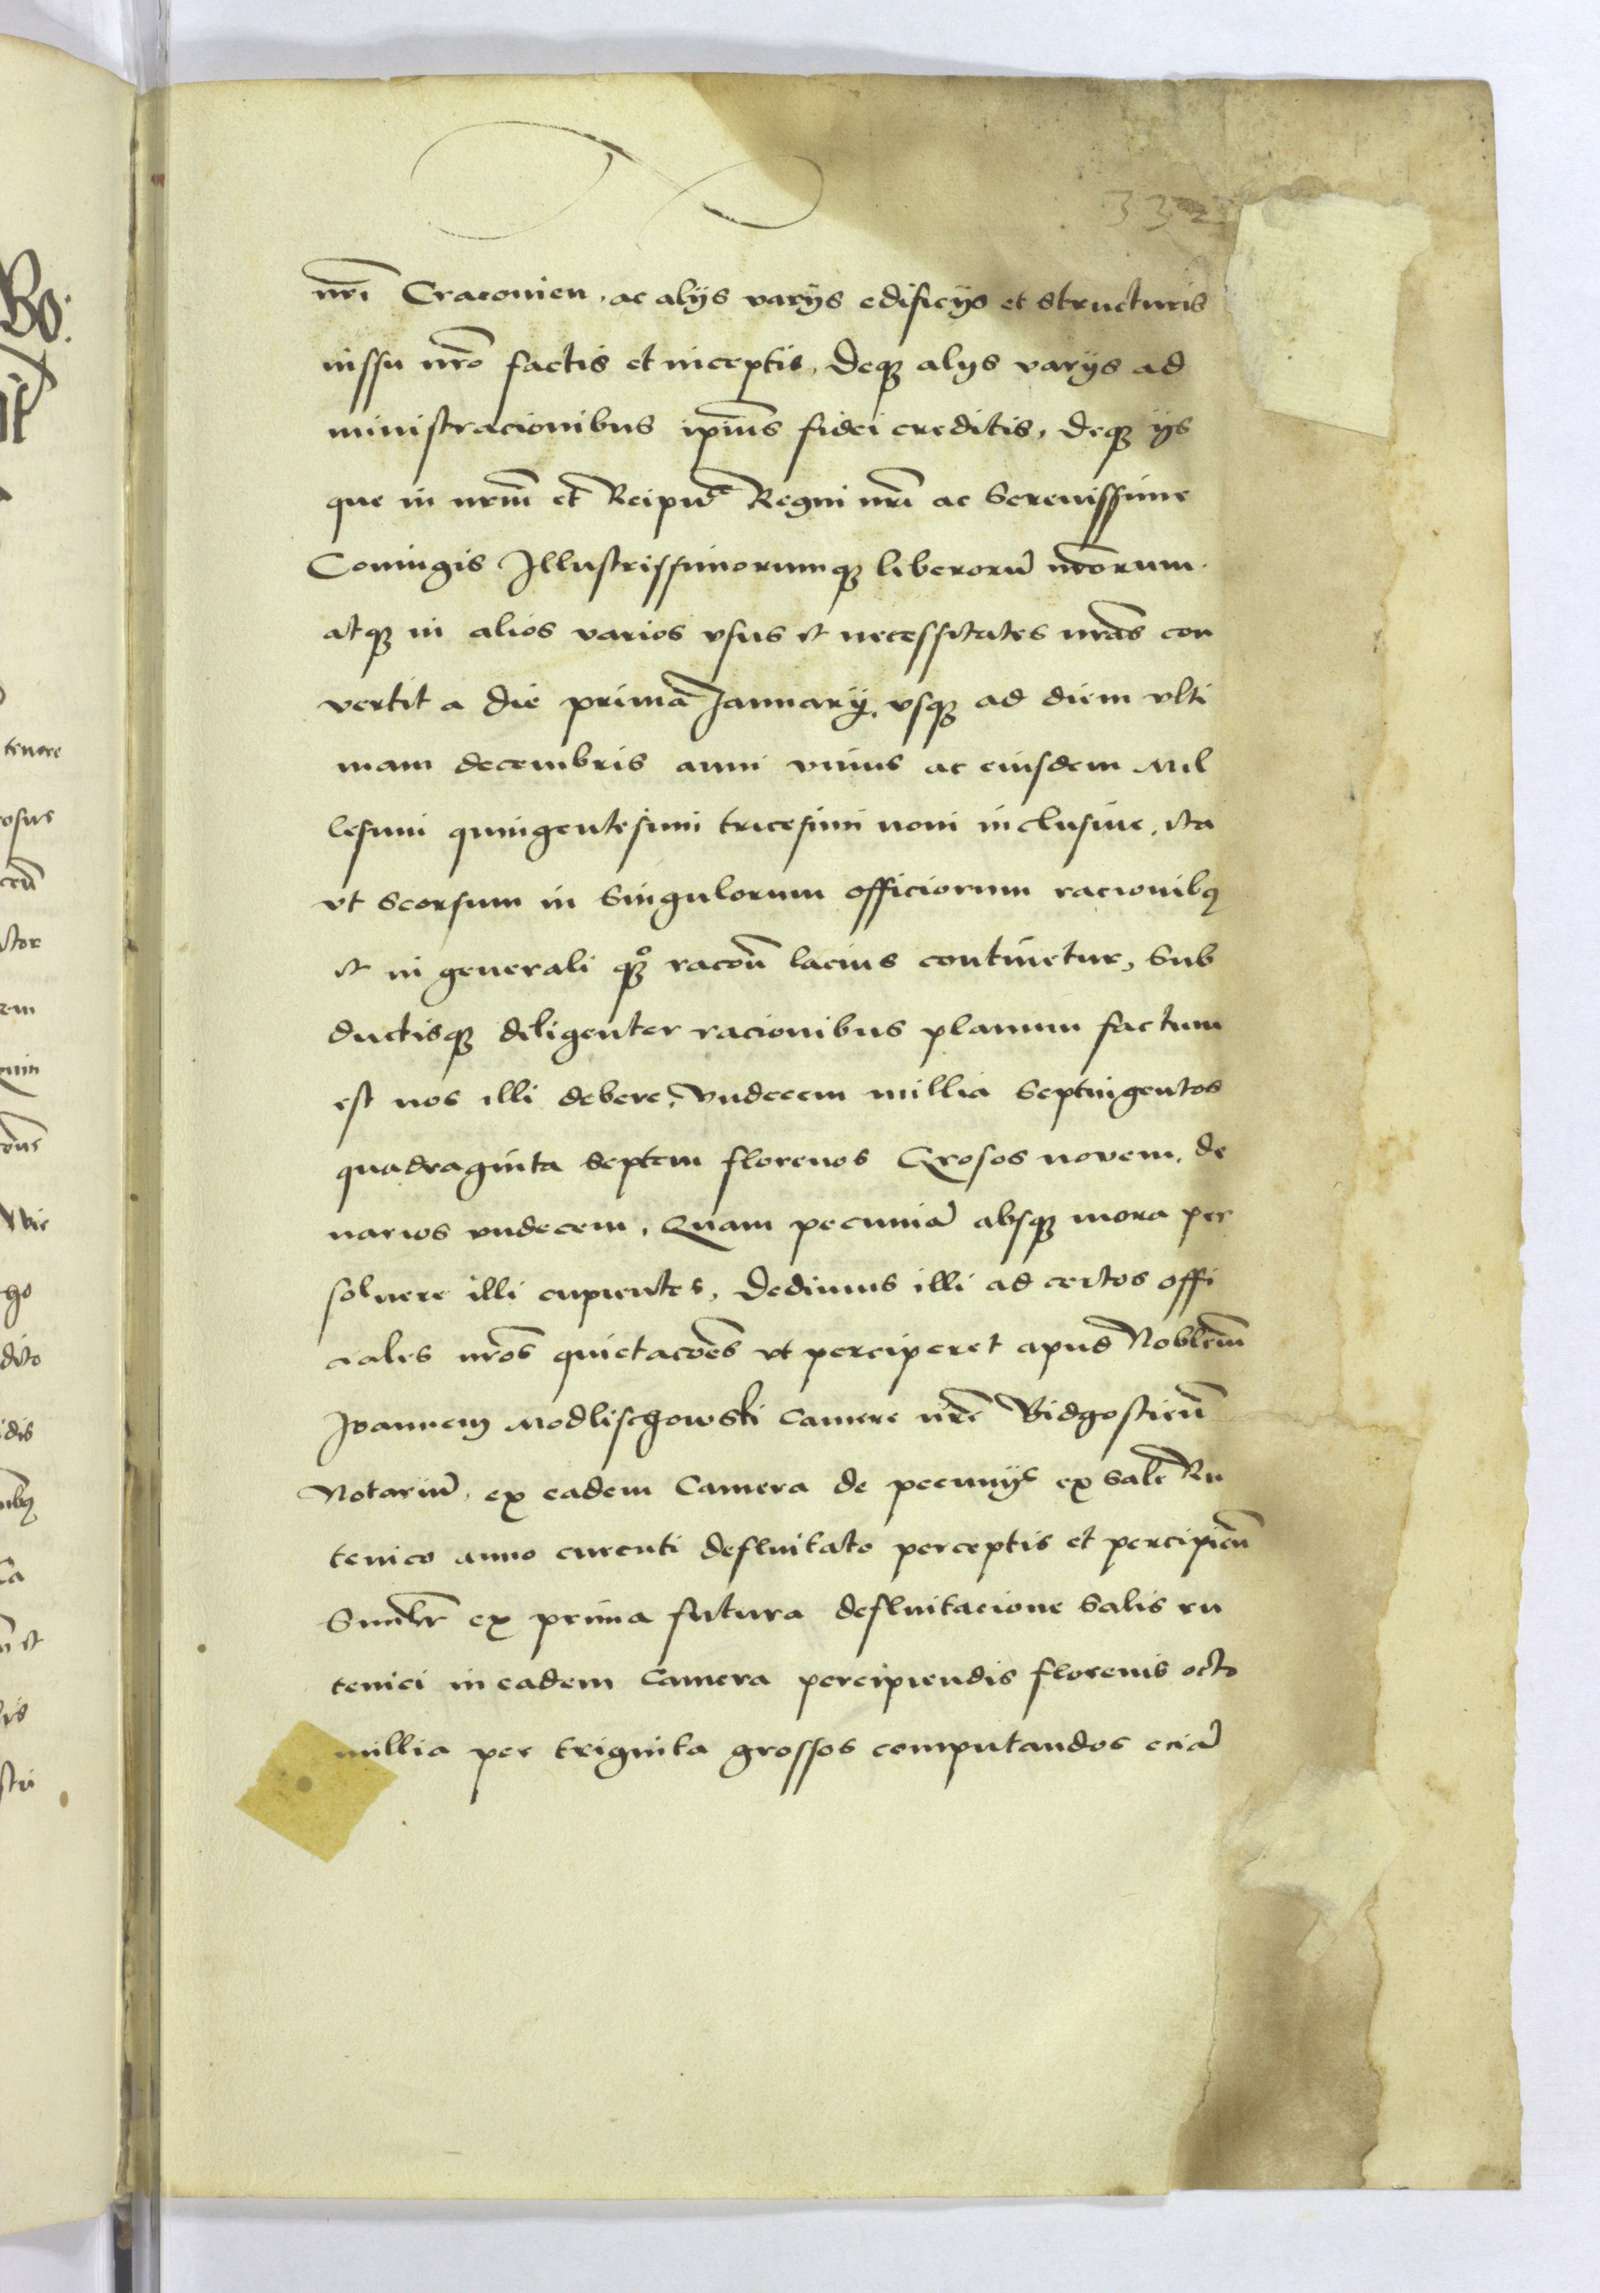 332
nri Cracovien. ac alijs varijs edificijs et structuris
iussu nro factis et inceptis, deq3 alijs varijs ad
ministracionibus ipius fidei creditis, deq3 ijs
que in nrm et Reipu. Regni nri ac Serenissime
Coniugis Illustrissimorumq3 liberorũ nrorum.
atq3 in alios varios vsus et necessitates nras con
vertit a die prima Januarij, vsq3 ad diem vlti
mam decembris anni vnius ac eiusdem Mil
lesimi quingentesimi tricesimi noni inclusiue, ita
vt seorsum in Singulorum officiorum racionibq
et in generali q3o racoũ lacius continetur, Sub
ductisq3 diligenter racionibus planum factum
est nos illi debere, vndecem millia Septingentos
quadraginta septem florenos Grosos novem, de
narios vndecem, Quam pecuniã absq3 mora per
soluere illi cupientes, dedimus illi ad certos offi
ciales nros quietacões vt perciperet apud Noblem
Joannem Modlischowski Camere nre Bidgosticñ
Notariũ, ex eadem Camera de pecunijs ex Sale Ru
tenico anno curenti defluitato perceptis et percipieñ
Similr ex prima futura defluitacione Salis ru
tenici in eadem Camera percipiendis florenis octo
millia per triginta grossos computandos eciã